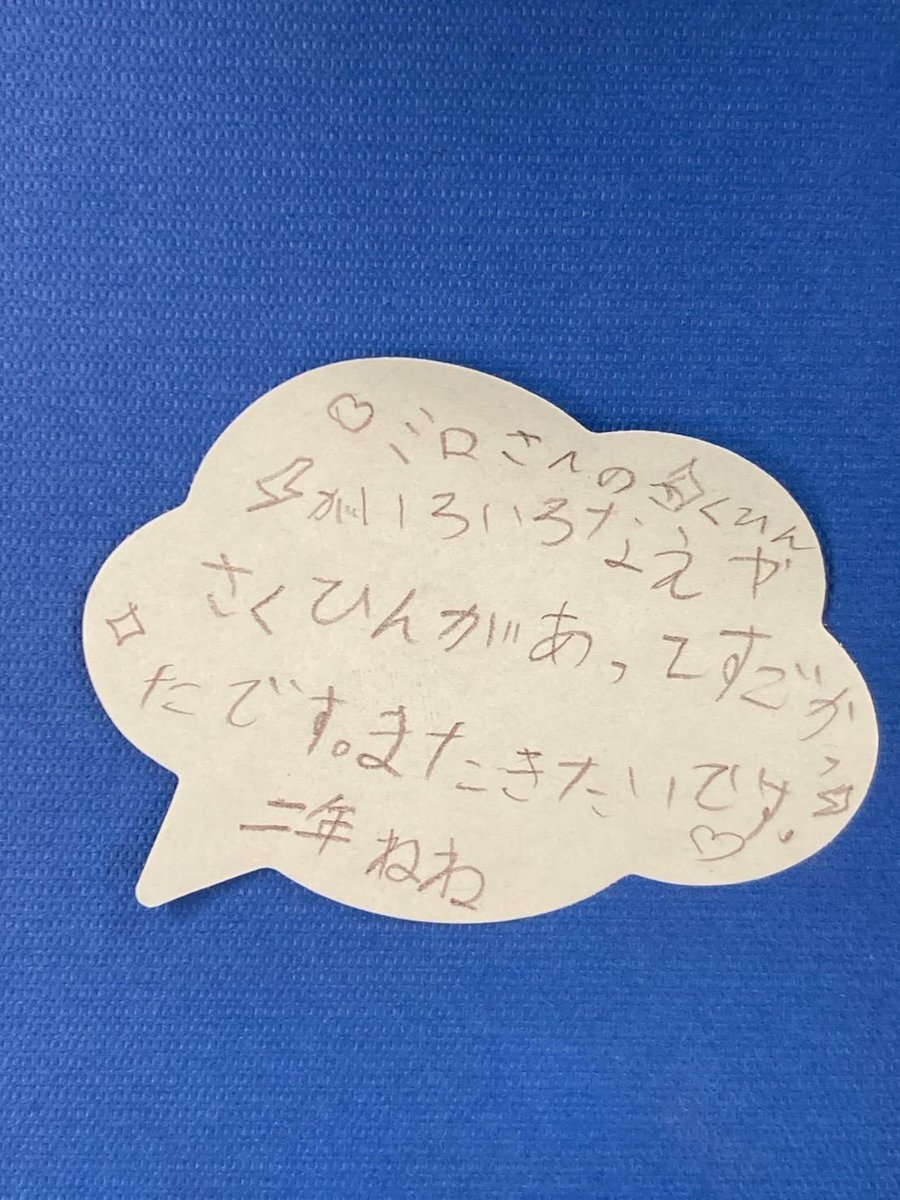 ミロさんのさくひん
がいろいろなえや
さくひんがあってすごかっ
たです。またきたいです。
二年 ねね